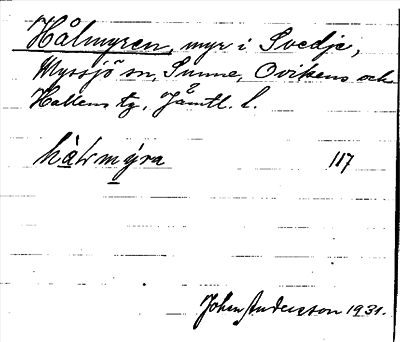 Hålmyren, myr i Svedje,
Myssjö sn, Sunne, Ovikens och
Hallens tg, Jämtl. l.
117
Johan Andersson 1931.